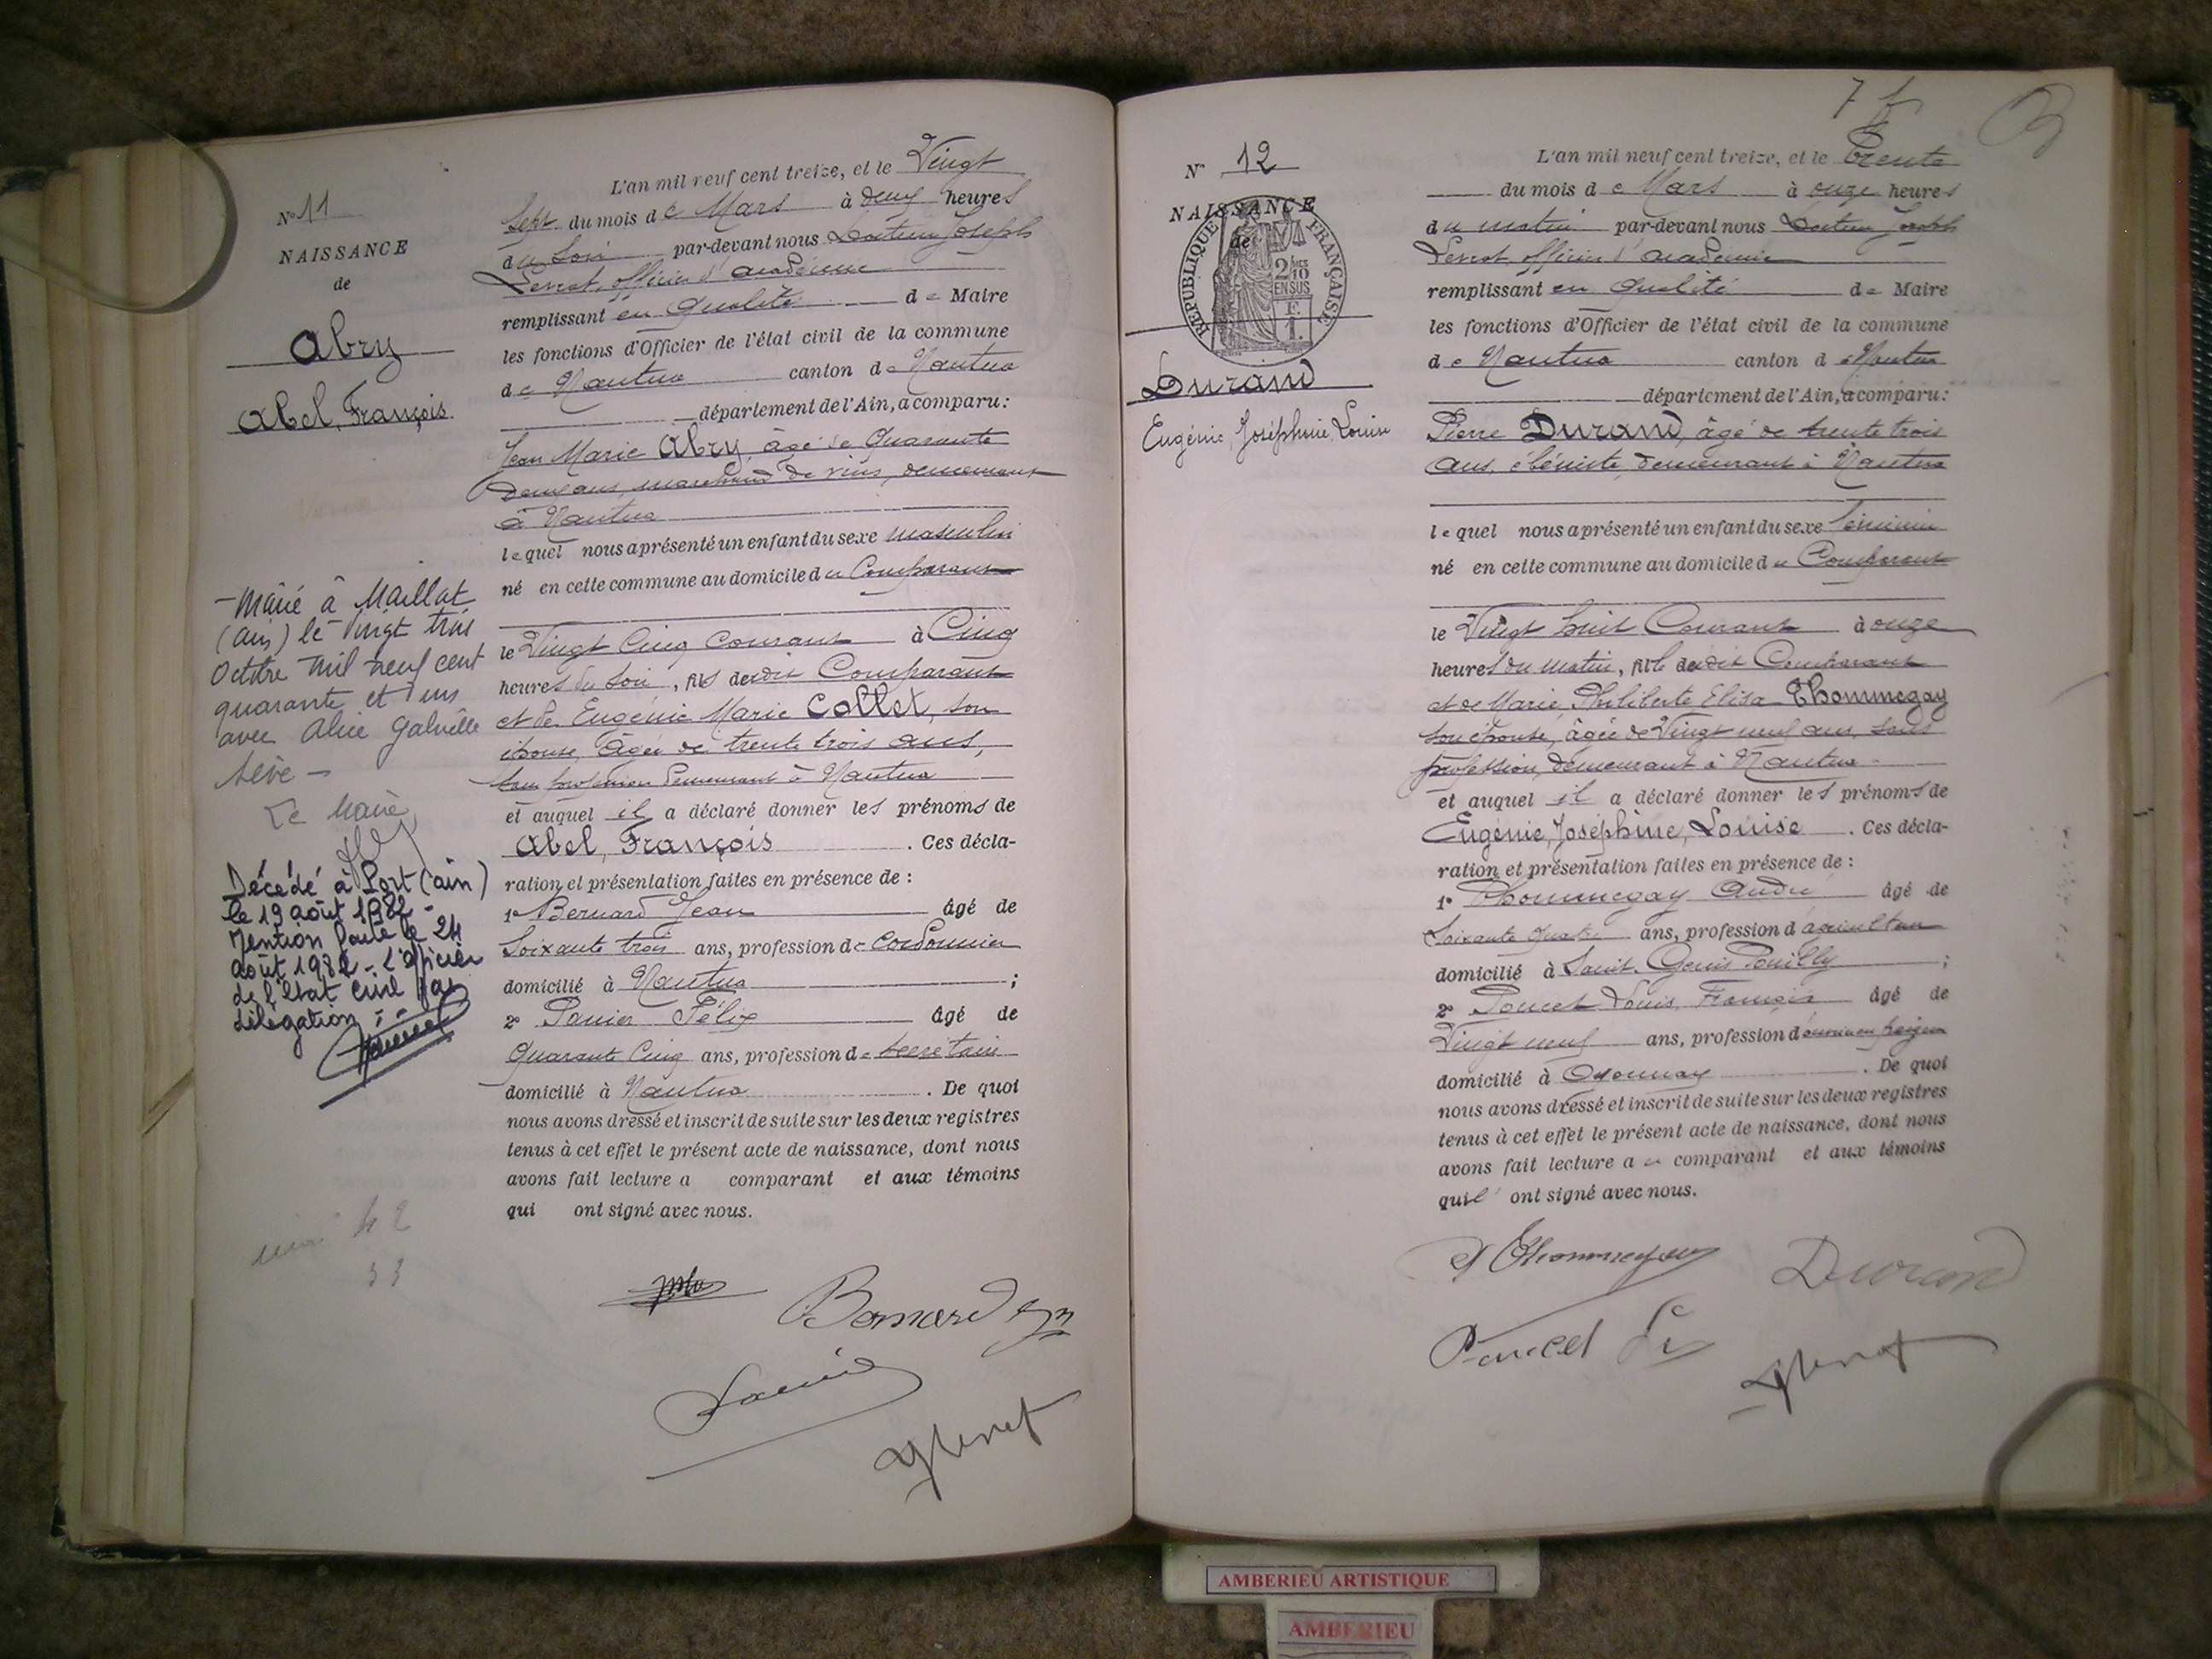 N° 11
NAISSANCE
de
Abry
Abel, François
L'an mil neuf cent treize, et le Vingt
Sept du mois de Mars à deux heures
du Soir par-devant nous Docteur Joseph
officier d'académie
remplissant en qualité de Maire
les fonctions d'Officier de l'état civil de la commune
de Nantua canton de Nantua
département de l'Ain, a comparu:
Jean Marie Abry, âgé de Quarante
deux ans, marchand de vins, demeurant
à Nantua
lequel nous a présenté un enfant du sexe masculin
né en cette commune au domicile du Comparant
le Vingt Cinq courant à Cinq
heures du soir, fils dudit Comparant
et de Eugénie Marie Collet, son
épouse, âgée de trente trois ans,
sans profession demeurant à Nantua
et auquel il a déclaré donner les prénoms de
Abel, François. Ces décla-
ration et présentation faites en présence de:
1° Bernard Jean âgé de
Soixante trois ans, profession de Cordonnier
domicilié à Nantua;
2° Félix âgé de
Quarante Cinq ans, profession de secrétaire
domicilié à Nantua. De quoi
nous avons dressé et inscrit de suite sur les deux registres
tenus à cet effet le présent acte de naissance, dont nous
avons fait lecture a comparant et aux témoins
qui ont signé avec nous.
- Marié à Maillat
(Ain) le vingt trois
Octobre mil neuf cent
quarante et un
avec Alice
Sève -
Le Maire,
Décédé à Port (ain)
le 19 août 1982 -
Mention faite le 24
août 1982 - L'officier
de l'état civil par
délégation :-
42
33
Bernard
7
N° 12
NAISSANCE
de
REPUBLIQUE FRANÇAISE
2/10
EN SUS
F.
1.
Durand
Eugénie, Joséphine, Louise
L'an mil neuf cent treize, et le Trente
du mois de Mars à onze heures
du matin par-devant nous Docteur Joseph
officier d'académie
remplissant en qualité de Maire
les fonctions d'Officier de l'état civil de la commune
de Nantua canton de Nantua
département de l'Ain, a comparu:
Pierre Durand, âgé de trente trois
ans, ébéniste, demeurant à Nantua
lequel nous a présenté un enfant du sexe féminin
né en cette commune au domicile du Comparant
le Vingt huit Courant à onze
heures du matin, fille dudit Comparant
et de Marie Philiberte Elisa Thommegay
son épouse, âgée de Vingt neuf ans, sans
profession, demeurant à Nantua
et auquel il a déclaré donner les prénoms de
Eugénie, Joséphine, Louise. Ces décla-
ration et présentation faites en présence de:
1° Thommegay André âgé de
Soixante quatre ans, profession d'agriculteur
domicilié à Saint Genis Pouilly;
2° Poncet Louis François âgé de
Vingt neuf ans, profession d'ouvrier
domicilié à Oyonnax. De quoi
nous avons dressé et inscrit de suite sur les deux registres
tenus à cet effet le présent acte de naissance, dont nous
avons fait lecture au comparant et aux témoins
qui ont signé avec nous.
Durand
Poncet
AMBERIEU ARTISTIQUE
AMBERIEU